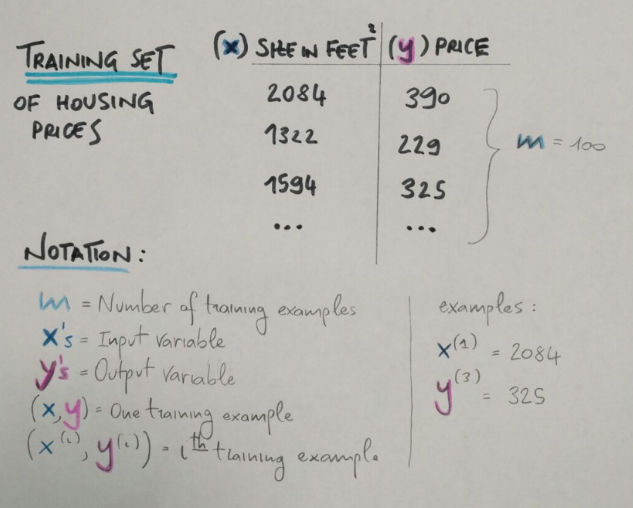 TRAINING SET
OF HOUSING
PRICES
(x) SIZE IN FEET² (y) PRICE
2084 390
1322 229
1594 325
... ...
m = 100
NOTATION:
m = Number of training examples
x's = Input variable
y's = Output variable
(x,y) = One training example
(x⁽ⁱ⁾, y⁽ⁱ⁾) = iᵗʰ training example
examples:
x⁽¹⁾ = 2084
y⁽³⁾ = 325